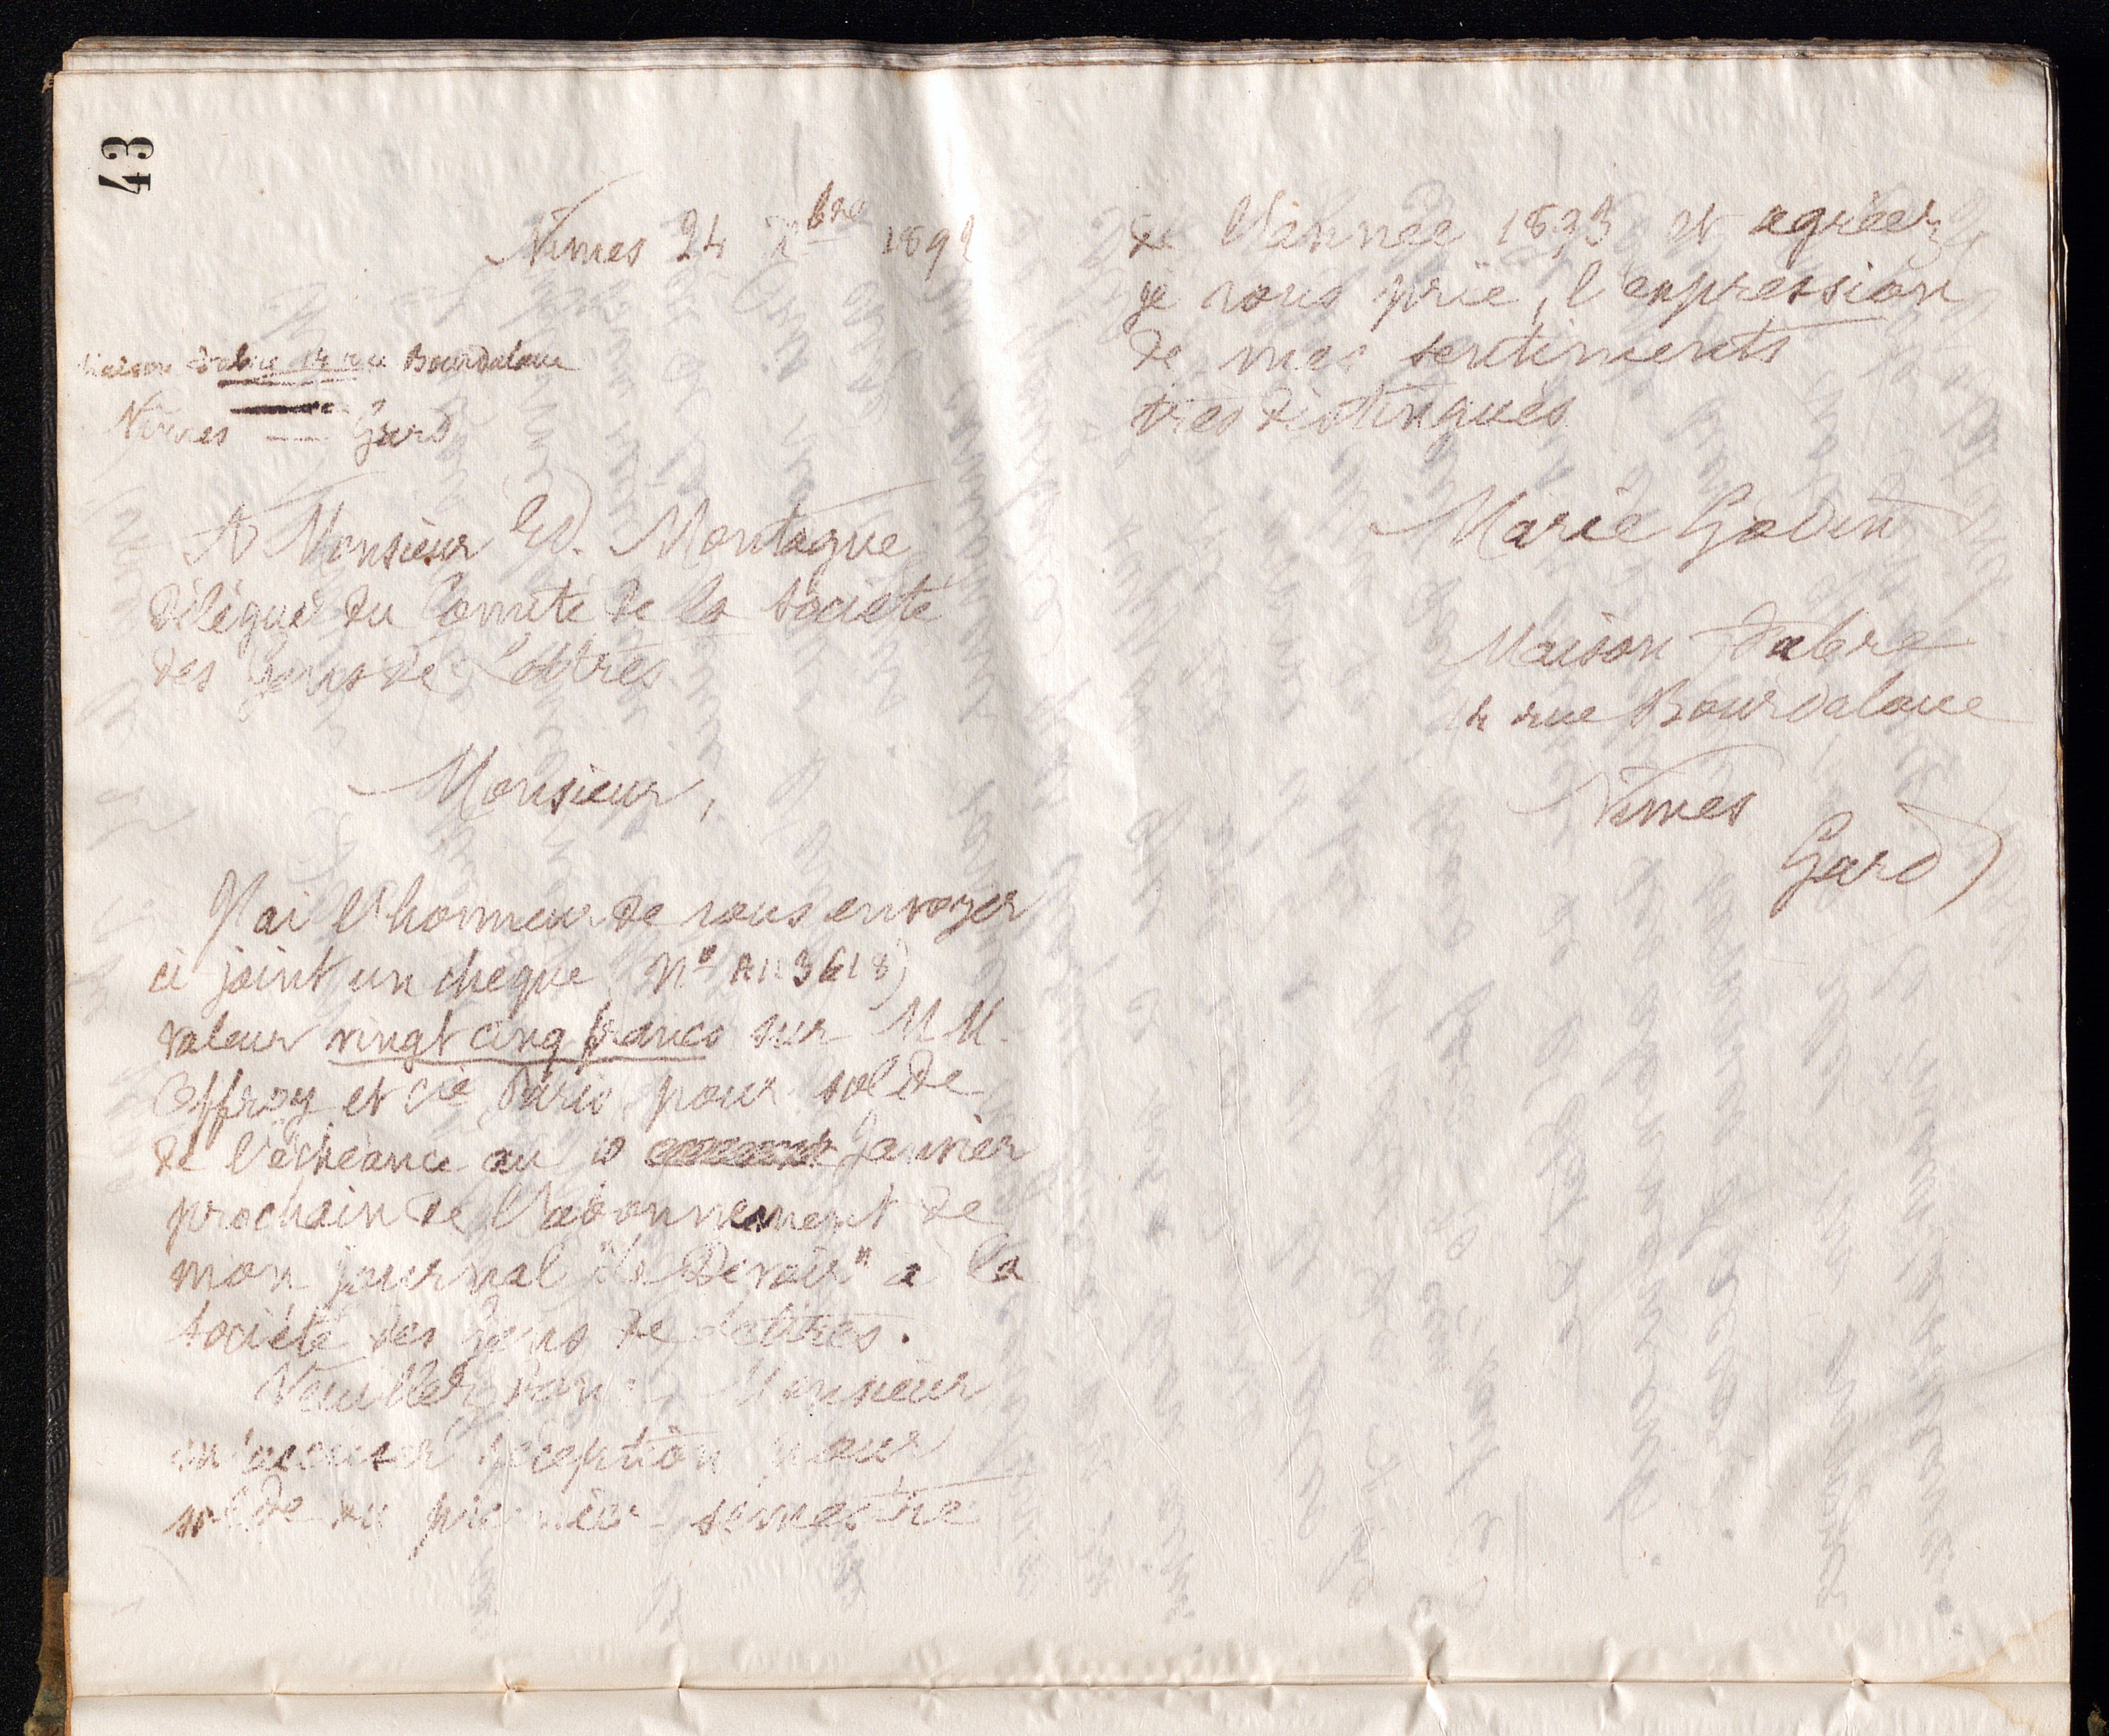 43
Nimes 24 Xbre 1892
Maison Fabre 14 rue Bourdaloue
Nimes — Gard
A Monsieur Ed. Montagne
délégué du Comité de la Société
des Gens de Lettres
Monsieur,
J'ai l'honneur de vous envoyer
ci joint un chèque (N°
valeur vingt cinq francs sur MM.
Offroy et Cie Paris pour solde
de l'échéance au 10 Janvier
prochain de l'abonnement de
mon journal "le Devoir" a la
Société des Gens de Lettres.
Veuillez donc Monsieur
m'accuser réception pour
solde du premier semestre
de l'année 1893 et agréer,
je vous prie, l'expression
de mes sentiments
très distingués
Marie Godin
Maison Fabre
14 rue Bourdaloue
Nimes
Gard